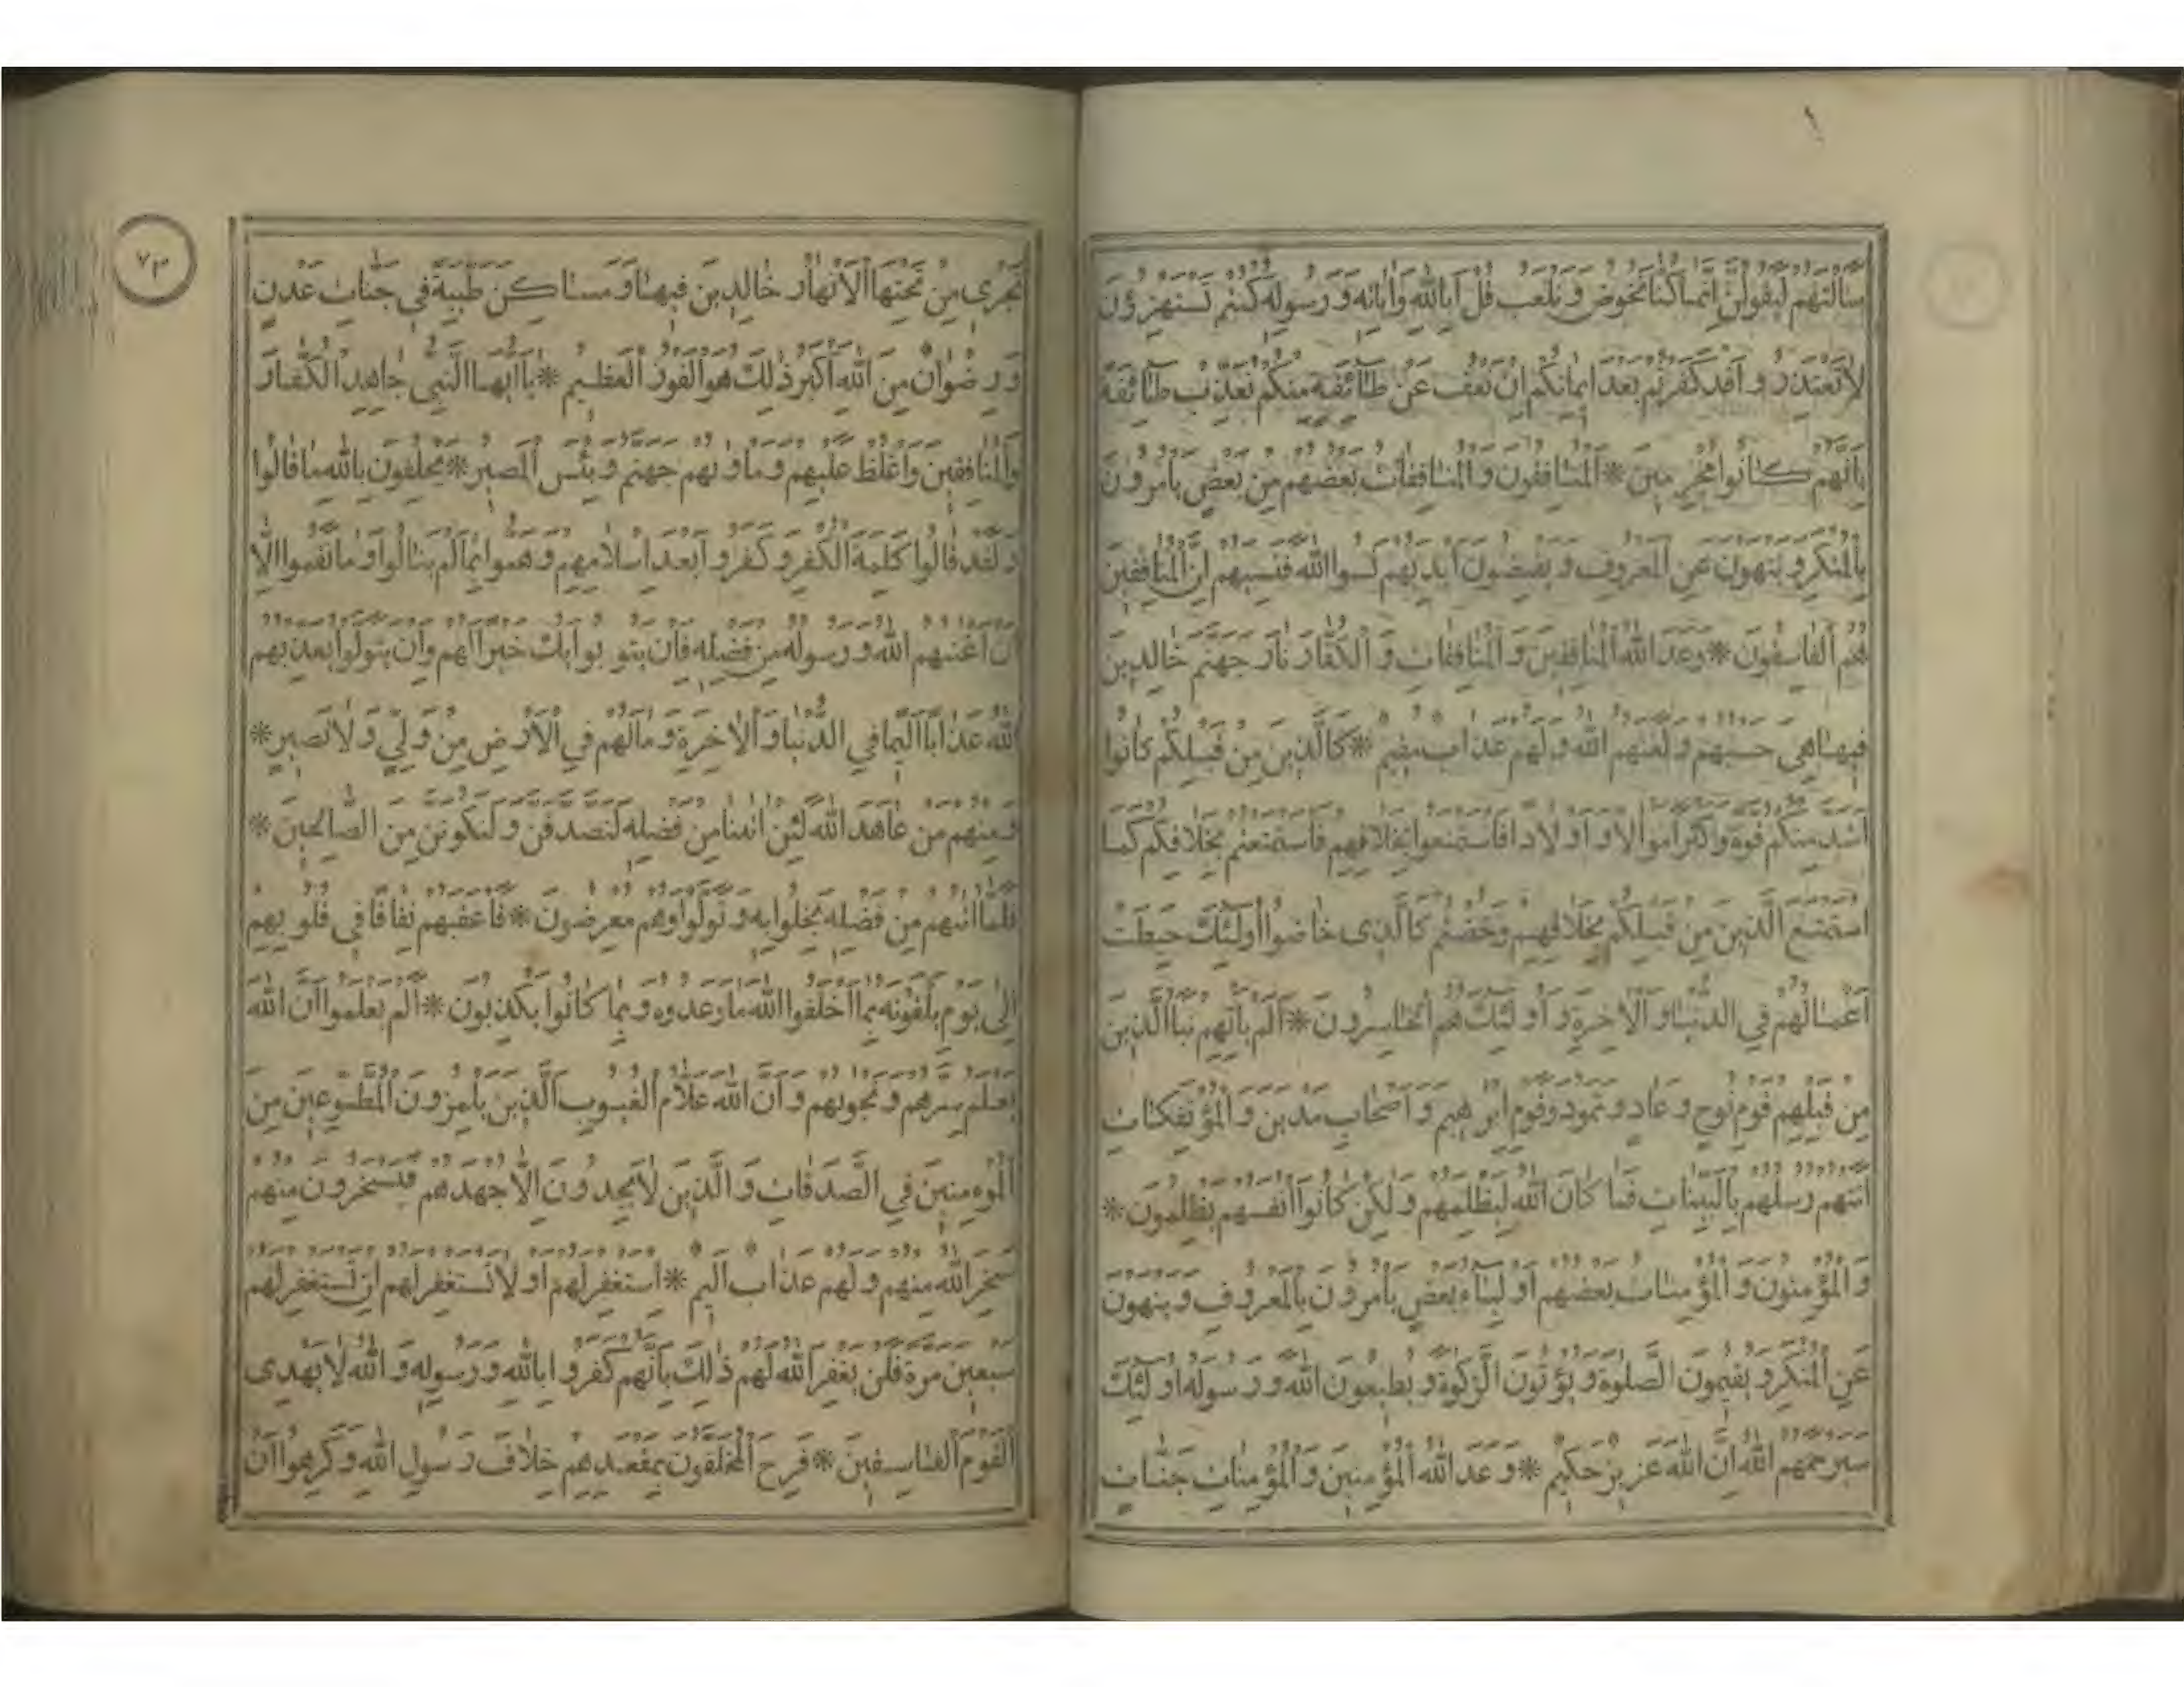 ١
سَاَلْتَهُمْ لَيَقُولُنَّ اِنَّمَا كُنَّا نَخُوضُ وَنَلْعَبُ قُلْ اَبِاللهِ وَاٰيَاتِهِ وَرَسُولِهِ كُنْتُمْ تَسْتَهْزِؤُنَ
لَا تَعْتَذِرُوا قَدْ كَفَرْتُمْ بَعْدَ اِيمَانِكُمْ اِنْ نَعْفُ عَنْ طَائِفَةٍ مِنْكُمْ نُعَذِّبْ طَائِفَةً
بِاَنَّهُمْ كَانُوا مُجْرِمِينَ * اَلْمُنَافِقُونَ وَالْمُنَافِقَاتُ بَعْضُهُمْ مِنْ بَعْضٍ يَاْمُرُونَ
بِالْمُنْكَرِ وَيَنْهَوْنَ عَنِ الْمَعْرُوفِ وَيَقْبِضُونَ اَيْدِيَهُمْ نَسُوا اللهَ فَنَسِيَهُمْ اِنَّ الْمُنَافِقِينَ
هُمُ الْفَاسِقُونَ * وَعَدَ اللهُ الْمُنَافِقِينَ وَالْمُنَافِقَاتِ وَالْكُفَّارَ نَارَ جَهَنَّمَ خَالِدِينَ
فِيهَا هِيَ حَسْبُهُمْ وَلَعَنَهُمُ اللهُ وَلَهُمْ عَذَابٌ مُقِيمٌ * كَالَّذِينَ مِنْ قَبْلِكُمْ كَانُوا
اَشَدَّ مِنْكُمْ قُوَّةً وَاَكْثَرَ اَمْوَالًا وَاَوْلَادًا فَاسْتَمْتَعُوا بِخَلَاقِهِمْ فَاسْتَمْتَعْتُمْ بِخَلَاقِكُمْ كَمَا
اسْتَمْتَعَ الَّذِينَ مِنْ قَبْلِكُمْ بِخَلَاقِهِمْ وَخُضْتُمْ كَالَّذِى خَاضُوا اُولٰئِكَ حَبِطَتْ
اَعْمَالُهُمْ فِي الدُّنْيَا وَالْاٰخِرَةِ وَاُولٰئِكَ هُمُ الْخَاسِرُونَ * اَلَمْ يَاْتِهِمْ نَبَاُ الَّذِينَ
مِنْ قَبْلِهِمْ قَوْمِ نُوحٍ وَعَادٍ وَثَمُودَ وَقَوْمِ اِبْرٰهِيمَ وَاَصْحَابِ مَدْيَنَ وَالْمُؤْتَفِكَاتِ
اَتَتْهُمْ رُسُلُهُمْ بِالْبَيِّنَاتِ فَمَا كَانَ اللهُ لِيَظْلِمَهُمْ وَلٰكِنْ كَانُوا اَنْفُسَهُمْ يَظْلِمُونَ *
وَالْمُؤْمِنُونَ وَالْمُؤْمِنَاتُ بَعْضُهُمْ اَوْلِيَاءُ بَعْضٍ يَاْمُرُونَ بِالْمَعْرُوفِ وَيَنْهَوْنَ
عَنِ الْمُنْكَرِ وَيُقِيمُونَ الصَّلٰوةَ وَيُؤْتُونَ الزَّكٰوةَ وَيُطِيعُونَ اللهَ وَرَسُولَهُ اُولٰئِكَ
سَيَرْحَمُهُمُ اللهُ اِنَّ اللهَ عَزِيزٌ حَكِيمٌ * وَعَدَ اللهُ الْمُؤْمِنِينَ وَالْمُؤْمِنَاتِ جَنَّاتٍ
٧٣
تَجْرِي مِنْ تَحْتِهَا الْاَنْهَارُ خَالِدِينَ فِيهَا وَمَسَاكِنَ طَيِّبَةً فِي جَنَّاتِ عَدْنٍ
وَرِضْوَانٌ مِنَ اللهِ اَكْبَرُ ذٰلِكَ هُوَ الْفَوْزُ الْعَظِيمُ * يَا اَيُّهَا النَّبِيُّ جَاهِدِ الْكُفَّارَ
وَالْمُنَافِقِينَ وَاغْلُظْ عَلَيْهِمْ وَمَاْوٰيهُمْ جَهَنَّمُ وَبِئْسَ الْمَصِيرُ * يَحْلِفُونَ بِاللهِ مَا قَالُوا
وَلَقَدْ قَالُوا كَلِمَةَ الْكُفْرِ وَكَفَرُوا بَعْدَ اِسْلَامِهِمْ وَهَمُّوا بِمَا لَمْ يَنَالُوا وَمَا نَقَمُوا اِلَّا
اَنْ اَغْنٰيهُمُ اللهُ وَرَسُولُهُ مِنْ فَضْلِهِ فَاِنْ يَتُوبُوا يَكُ خَيْرًا لَهُمْ وَاِنْ يَتَوَلَّوْا يُعَذِّبْهُمُ
اللهُ عَذَابًا اَلِيمًا فِي الدُّنْيَا وَالْاٰخِرَةِ وَمَا لَهُمْ فِي الْاَرْضِ مِنْ وَلِيٍّ وَلَا نَصِيرٍ *
وَمِنْهُمْ مَنْ عَاهَدَ اللهَ لَئِنْ اٰتٰينَا مِنْ فَضْلِهِ لَنَصَّدَّقَنَّ وَلَنَكُونَنَّ مِنَ الصَّالِحِينَ *
فَلَمَّا اٰتٰيهُمْ مِنْ فَضْلِهِ بَخِلُوا بِهِ وَتَوَلَّوْا وَهُمْ مُعْرِضُونَ * فَاَعْقَبَهُمْ نِفَاقًا فِي قُلُوبِهِمْ
اِلٰى يَوْمِ يَلْقَوْنَهُ بِمَا اَخْلَفُوا اللهَ مَا وَعَدُوهُ وَبِمَا كَانُوا يَكْذِبُونَ * اَلَمْ يَعْلَمُوا اَنَّ اللهَ
يَعْلَمُ سِرَّهُمْ وَنَجْوٰيهُمْ وَاَنَّ اللهَ عَلَّامُ الْغُيُوبِ اَلَّذِينَ يَلْمِزُونَ الْمُطَّوِّعِينَ مِنَ
الْمُؤْمِنِينَ فِي الصَّدَقَاتِ وَالَّذِينَ لَا يَجِدُونَ اِلَّا جُهْدَهُمْ فَيَسْخَرُونَ مِنْهُمْ
سَخِرَ اللهُ مِنْهُمْ وَلَهُمْ عَذَابٌ اَلِيمٌ * اِسْتَغْفِرْ لَهُمْ اَوْ لَا تَسْتَغْفِرْ لَهُمْ اِنْ تَسْتَغْفِرْ لَهُمْ
سَبْعِينَ مَرَّةً فَلَنْ يَغْفِرَ اللهُ لَهُمْ ذٰلِكَ بِاَنَّهُمْ كَفَرُوا بِاللهِ وَرَسُولِهِ وَاللهُ لَا يَهْدِى
الْقَوْمَ الْفَاسِقِينَ * فَرِحَ الْمُخَلَّفُونَ بِمَقْعَدِهِمْ خِلَافَ رَسُولِ اللهِ وَكَرِهُوا اَنْ